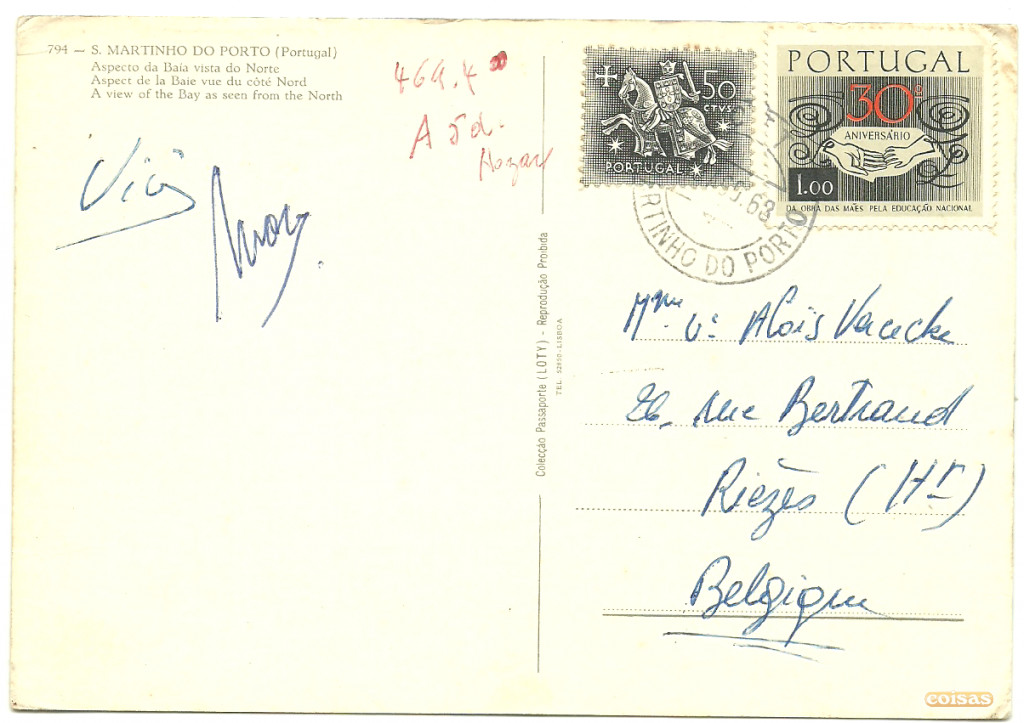 794 — S. MARTINHO DO PORTO (Portugal)
Aspecto da Baía vista do Norte
Aspect de la Baie vue du côté Nord
A view of the Bay as seen from the North
469.4
A 5d.
50
CTVS.
PORTUGAL
PORTUGAL
30º
ANIVERSÁRIO
1.00
DA OBRA DAS MÃES PELA EDUCAÇÃO NACIONAL
68
RTINHO DO PORTO
Colecção Passaporte (LOTY) - Reprodução Proibida
TEL. 52850-LISBOA
Mme Ve Aloïs Verecke
26, rue Bertrand
Riezes (Ht)
Belgique
coisas